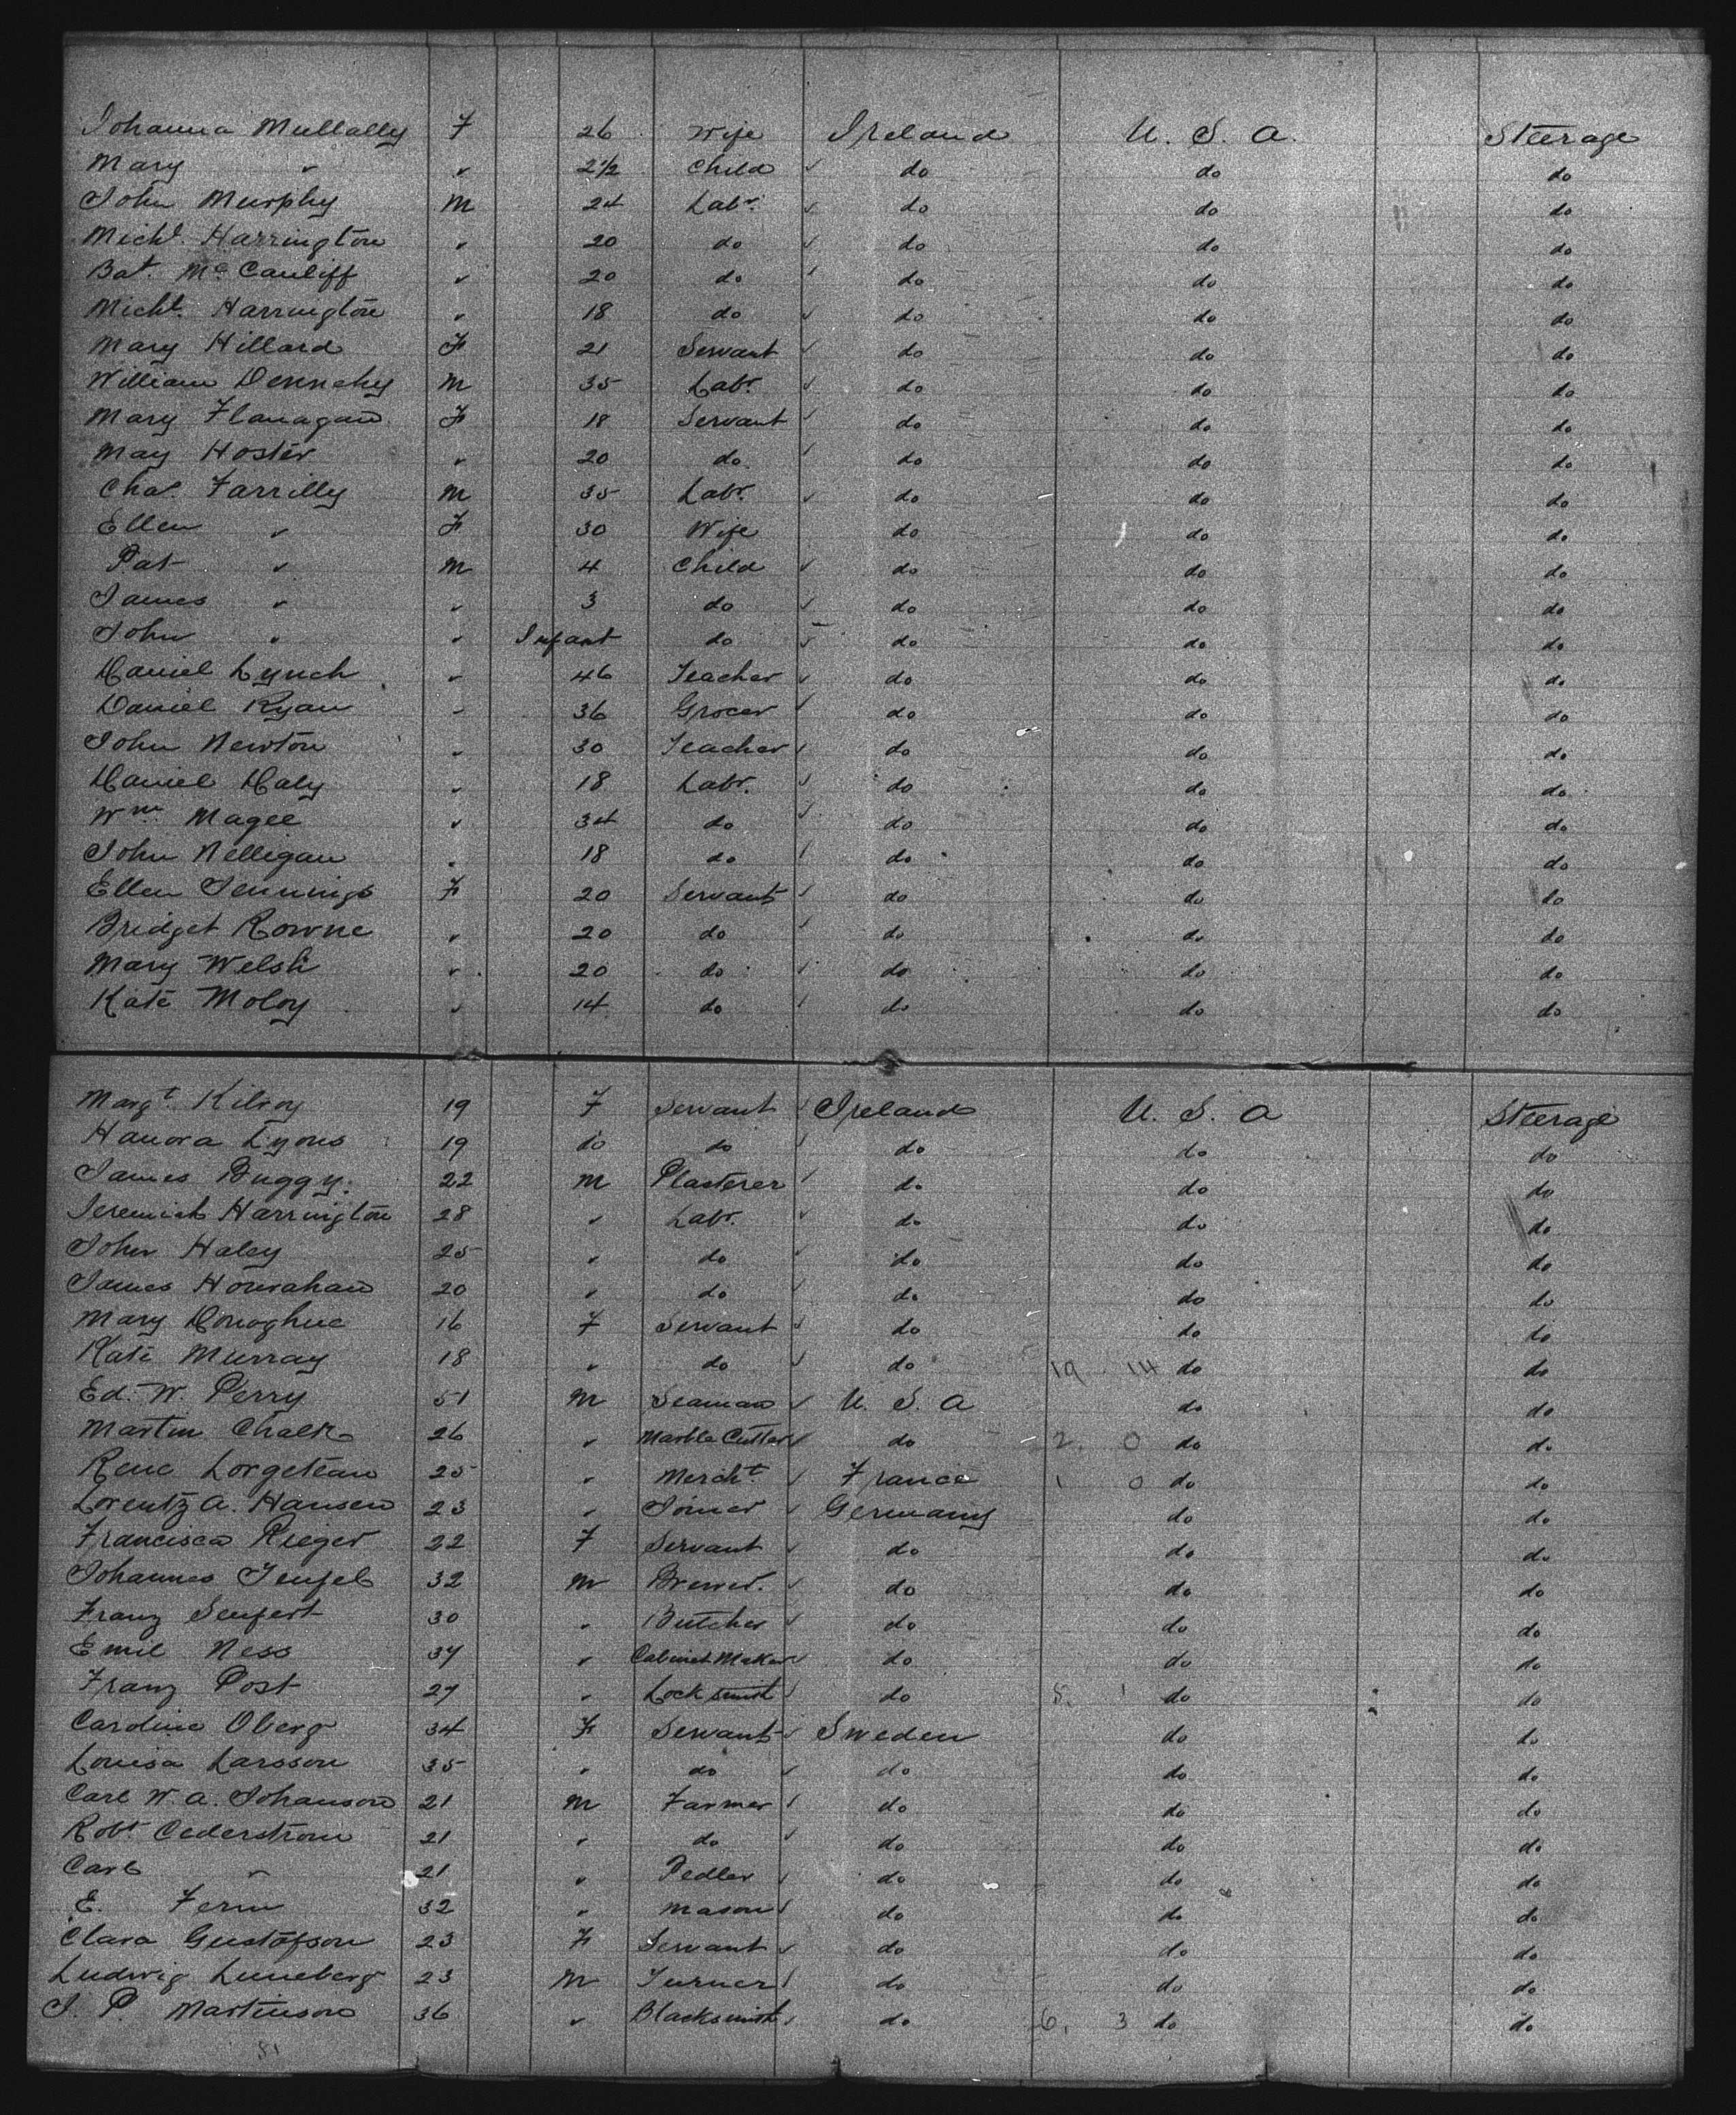 Johanna Mullally F 26 Wife Ireland U. S. A. Steerage
Mary " " 2 1/2 Child do do do
John Murphy M 24 Labr. do do do
Michl. Harrington " 20 do do do do
Bat. McCauliff " 20 do do do do
Michl. Harrington " 18 do do do do
Mary Hillard F 21 Servant do do do
William Dennehy M 35 Labr. do do do
Mary Flanagan F 18 Servant do do do
May Hoster " 20 do do do do
Chas. Farrilly M 35 Labr. do do do
Ellen " F 30 Wife do do do
Pat " M 4 Child do do do
James " " 3 do do do do
John " " Infant do do do do
Daniel Lynch " 46 Teacher do do do
Daniel Ryan " 36 Grocer do do do
John Newton " 30 Teacher do do do
Daniel Daly " 18 Labr. do do do
Wm. Magee " 34 do do do do
John Nelligan " 18 do do do do
Ellen Jennings F 20 Servant do do do
Bridget Rowne " 20 do do do do
Mary Welsh " 20 do do do do
Kate Moloy " 14 do do do do
Margt. Kilroy 19 F Servant Ireland U. S. A Steerage
Hanora Lyons 19 do do do do do
James Buggy. 22 M Plasterer do do do
Jeremiah Harrington 28 " Labr. do do do
John Haley 25 " do do do do
James Hourahan 20 " do do do do
Mary Donoghue 16 F Servant do do do
Kate Murray 18 " do do 19 14 do do
Ed. W. Perry 51 M Seaman U. S. A do do
Martin Chalk 26 " Marble Cutter do 2. 0 do do
Rene Lorgeteau 25 " Mercht. France 1 0 do do
Lorentz A. Hansen 23 " Joiner Germany do do
Francisca Rieger 22 F Servant do do do
Johannes Teufel 32 M Brewer. do do do
Franz Seufert 30 " Butcher do do do
Emil Ness 37 " Cabinet Maker do do do
Franz Post 27 " Locksmith do 5. 1 do do
Caroline Oberg 34 F Servant Sweden do do
Louisa Larsson 35 " do do do do
Carl W. A. Johanson 21 M Farmer do do do
Robt. Cederstrom 21 " do do do do
Carl " 21 " Pedler do do do
E. Ferm 32 " Mason do do do
Clara Gustofson 23 F Servant do do do
Ludwig Luneberg 23 M Turner do do do
J. P. Martinson 36 " Blacksmith do 6. 3 do do
81